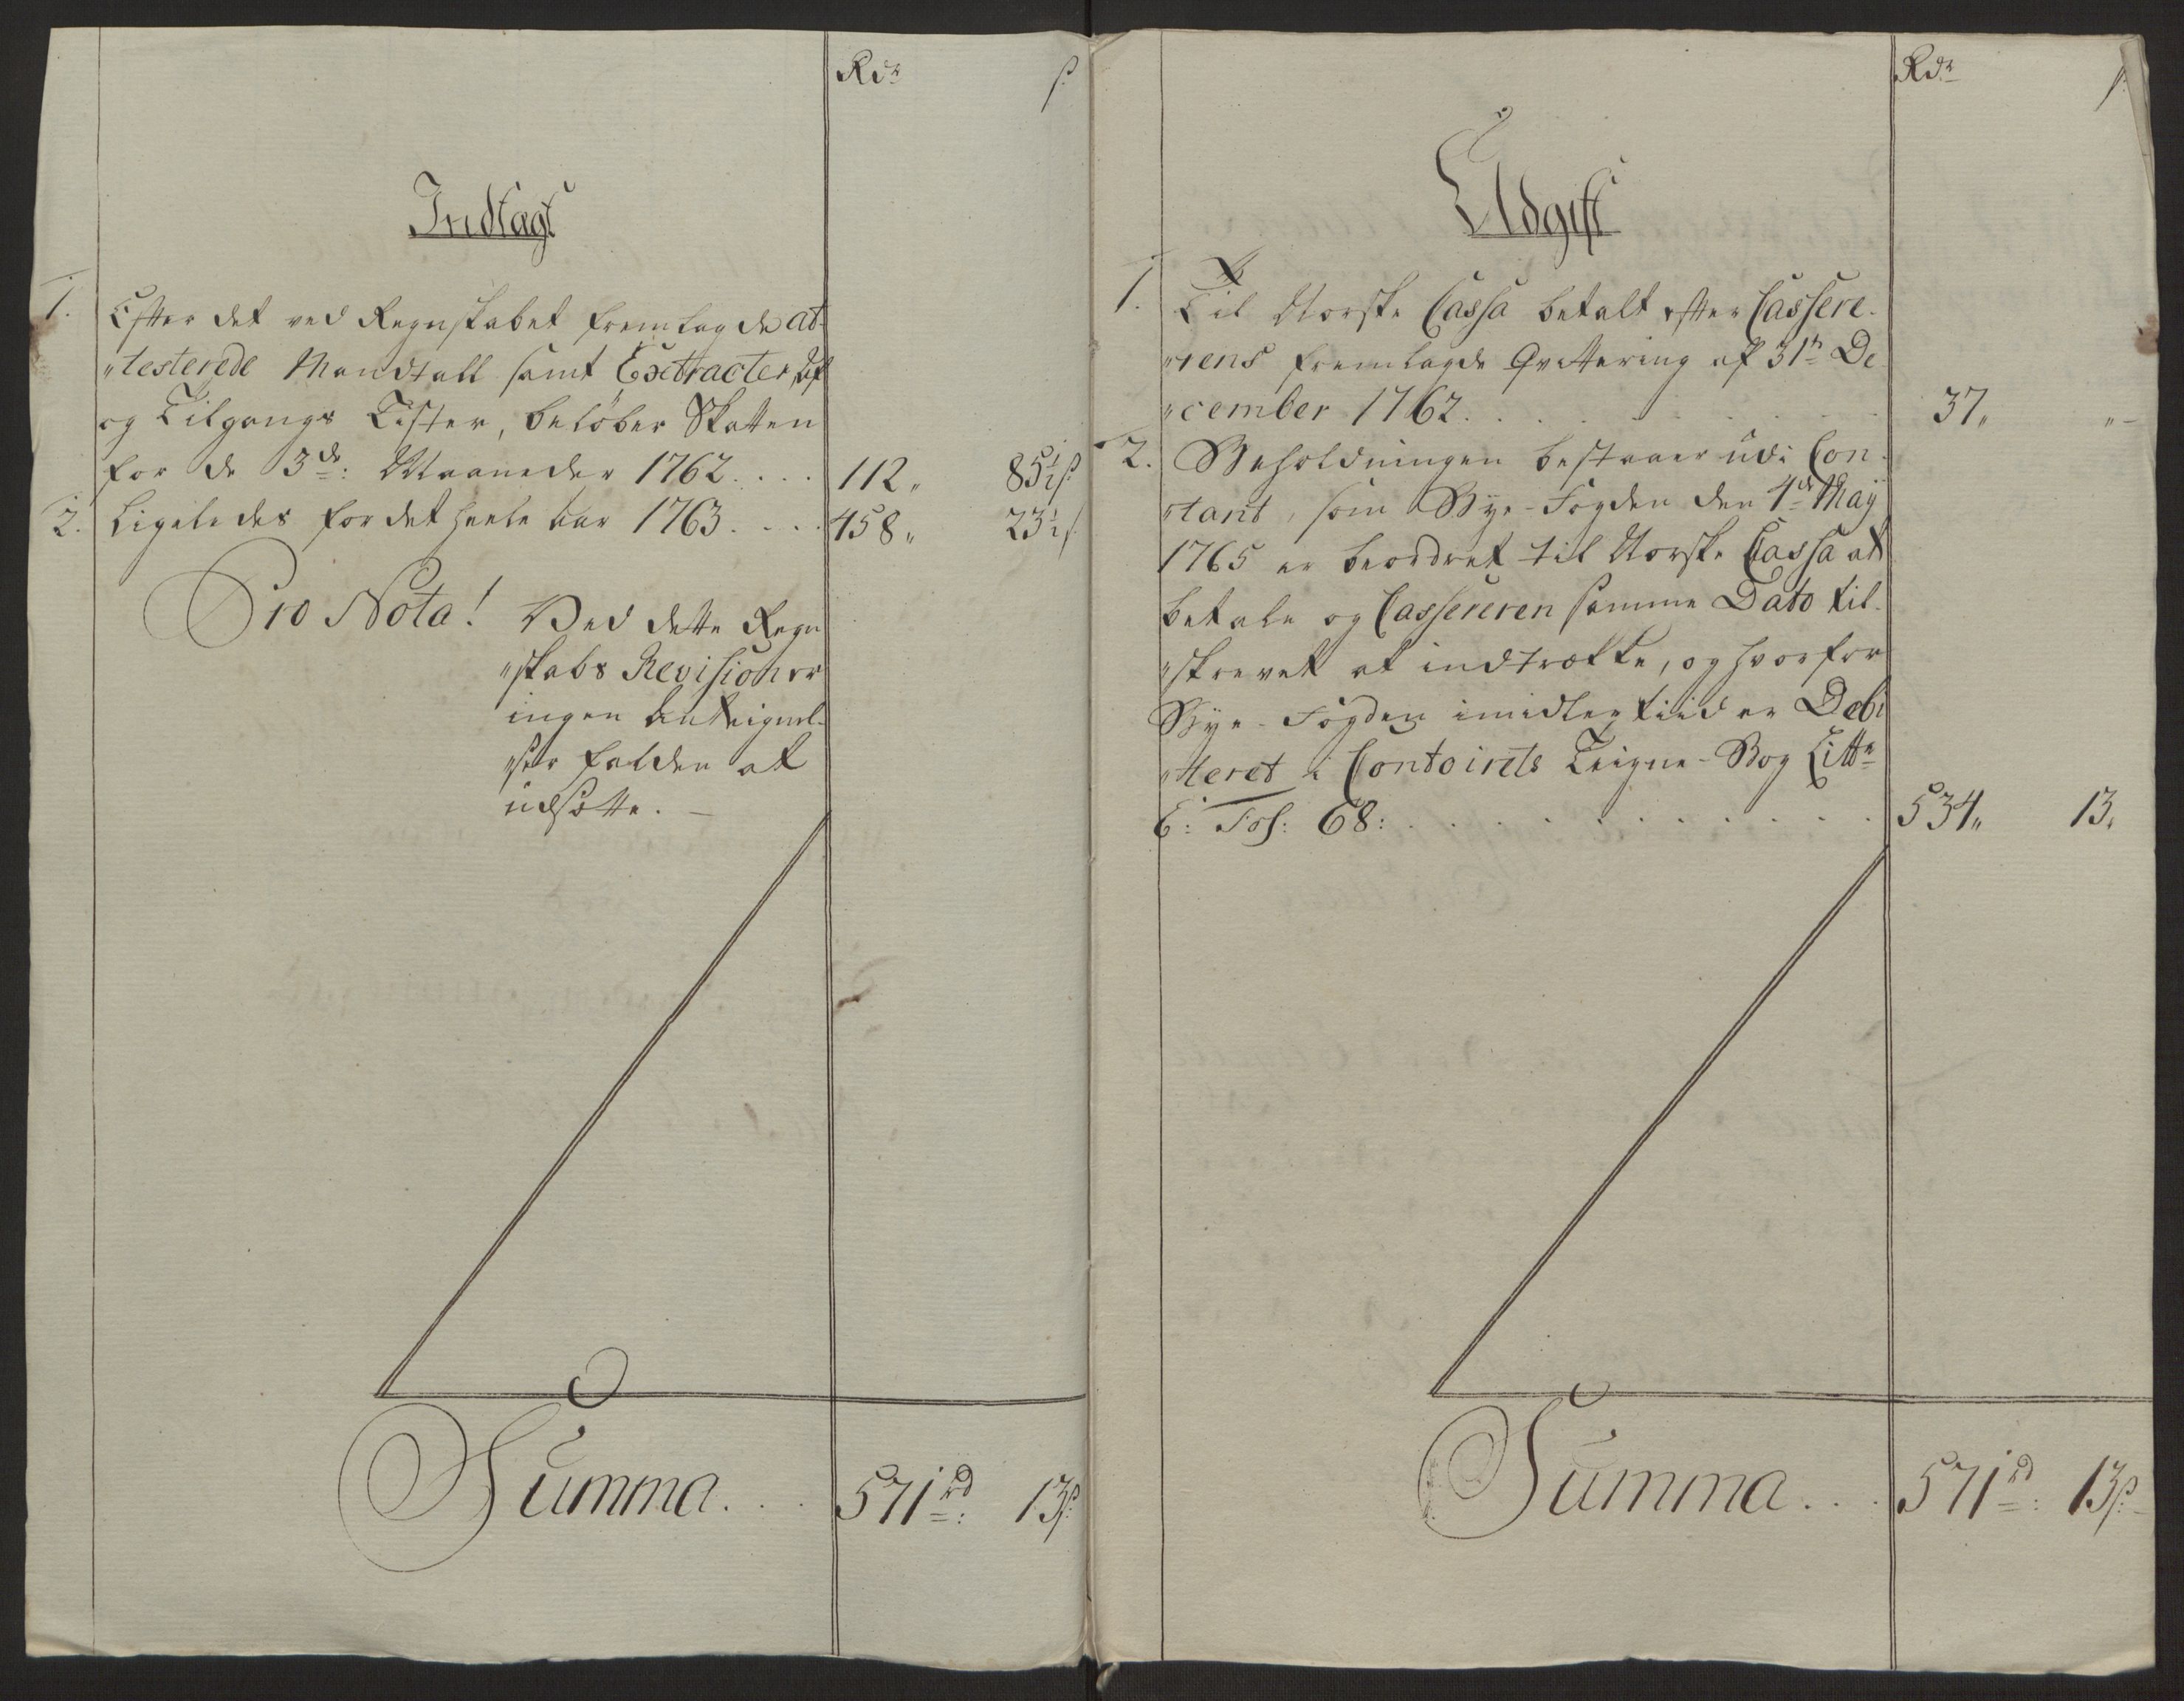 Rdr ß
Indtægt
1. Efter det ved Regnskabet fremlagde at
"testerede Mandtall samt Extracter, Af
og Tilgangs Lister, beløber Skatten
for de 3de: Maaneder 1762.... 112" 85½ß
2. Ligeledes for det heele aar 1763.... 458" 23½ß
Pro Nota! Ved dette Regn
"skabs Revision er
ingen Anteignel-
"ser falden at
udsætte. —
Summa... 571rd: 13ß:
Rdr ß
Udgift
1. Til Norske Cassa betalt efter Cassere-
"rens fremlagde Qvittering af 31te De
"cember 1762....... 37" " –
2. Beholdningen bestaaer udi Con-
"tant, som Bye-Fogden den 4de May
1765 er beordret til Norske Cassa at
betale og Cassereren samme Dato til-
"skrevet at indtrække, og hvorfor
Bye-Fogden imidlertiid er Debi
"teret i Contoirets Teigne-Bog Litte
E: Fol: 68: ........... 534" 13"
Summa... 571rd: 13ß: